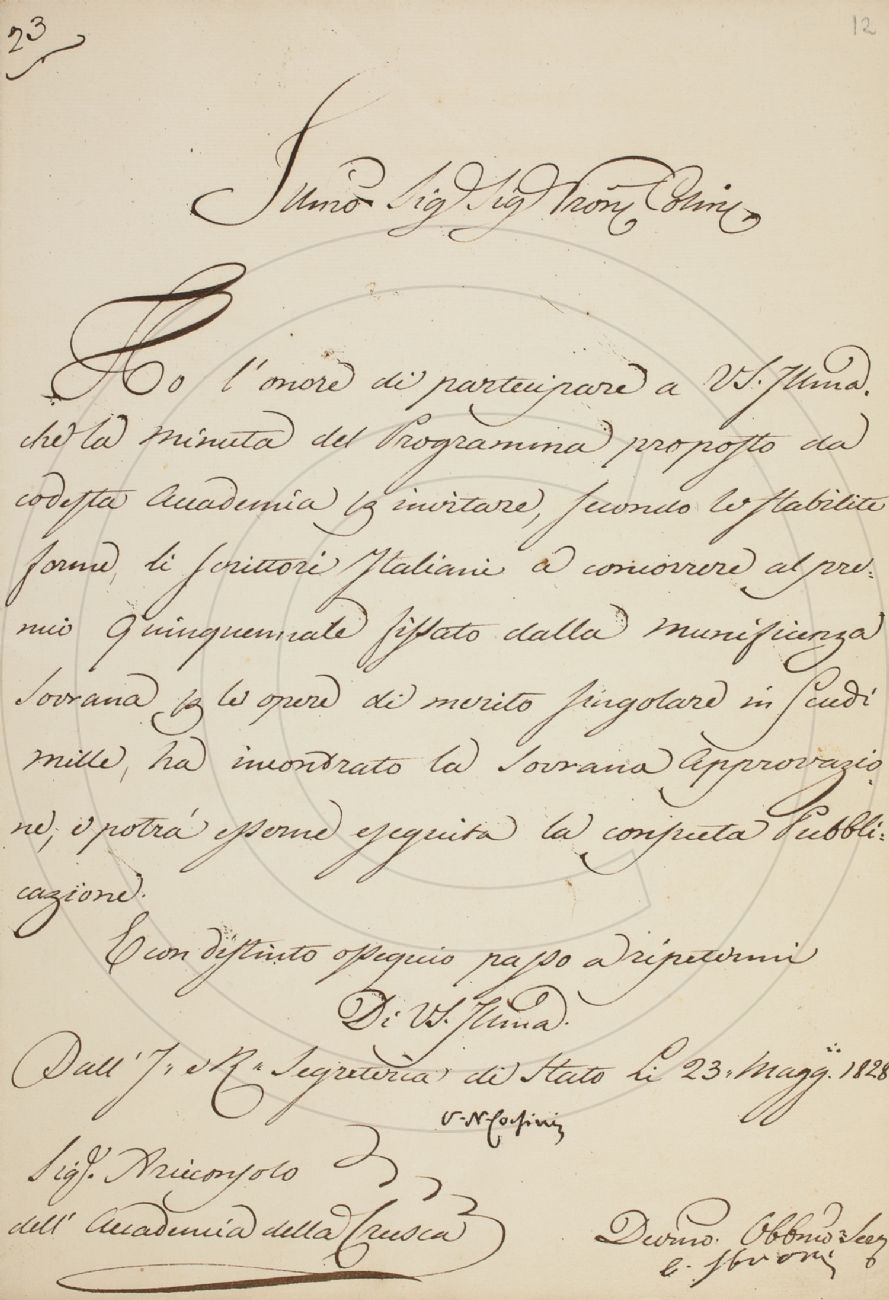 23
12
Illmo Sig. Sig. Pron. Colmo
Ho l'onore di partecipare a VS. Illma.
che la minuta del Programma proposto da
codesta Accademia p invitare, secondo le stabilite
forme, li scrittori Italiani a concorrere al pre:
mio Quinquennale fissato dalla munificenza
Sovrana p le opere di merito singolare in Scudi
mille, ha incontrato la Sovrana Approvazio
ne, e potrà esserne eseguita la consueta Pubbli:
cazione.
E con distinto ossequio passo a ripetermi
Di VS. Illma.
Dall' I. e R. Segreteria di Stato li 23. Magg. 1828
V. N. Corsini
Sigr. Arciconsolo
dell' Accademia della Crusca
Devmo. Obbmo Serv